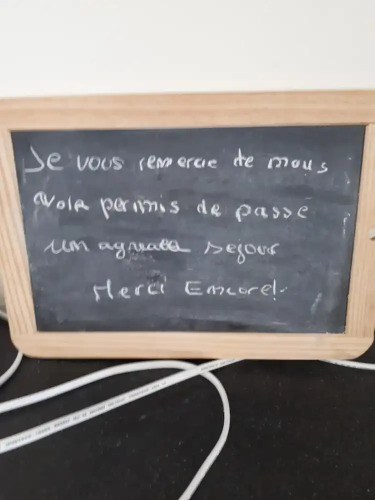 Je vous remercie de mous
avoir permis de passé
um agreable sejour
Merci Emcore!